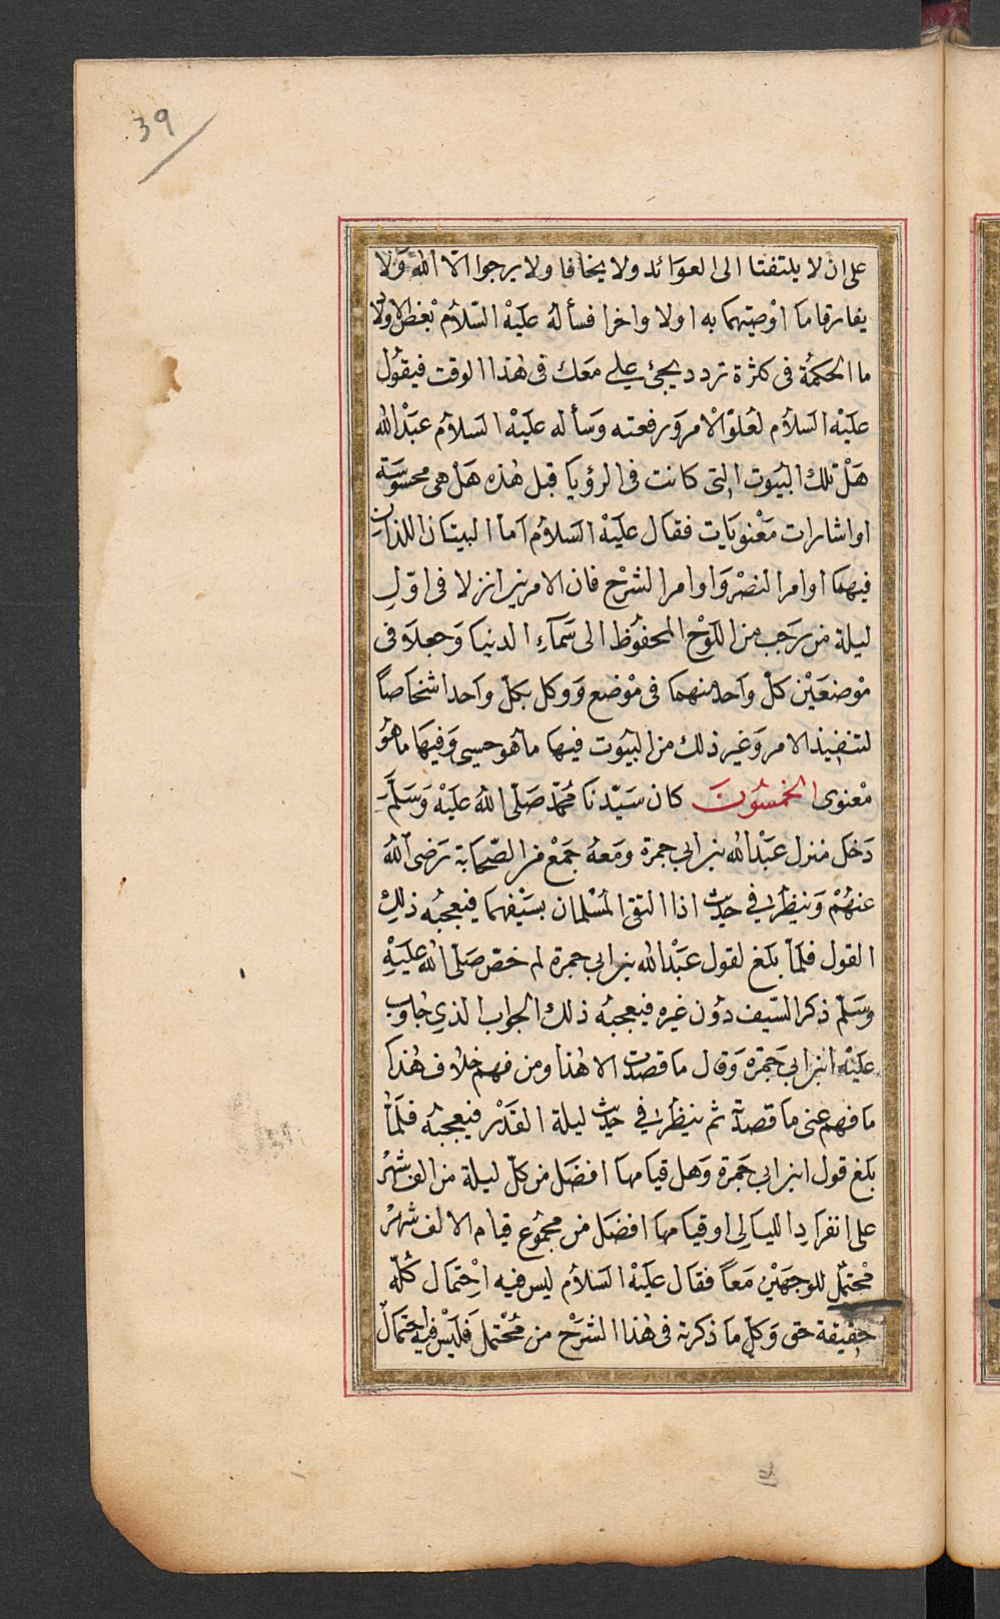 39
على ان لا يلتفتا الى العوَائد ولا يخافا ولا يرجوا الّا اللّٰه وَلا
يفارقا ما اوْصيتهما به اولا واخرا فسألهُ عليَهْ السّلاٰم بَعْض الاولاد
ما الحكمُة فى كثرة تردد يجئ على مَعَك فى هٰذا الوقت فيقوُل
عليَهْ السَلاٰم لعُلوّ الاْمر وَرفعته وَسَأله عليَهْ السَلاٰم عبَدْ اللّٰه
هَلْ تلك البيُوت التى كانت فى الرؤيَا قبل هٰذه هَلْ هى محسُوسَة
او اشارات مَعْنويَات فقال عليَهْ السَلاٰم امّا البيتَان اللذان
فيهمَا اوامر النصْر وَاوامر الشرْح فان الامرين انزلا فى اوّلِ
ليلة من رجَب من اللوْح المحفوُظ الى سَمَآءِ الدنيَا وَجعلاَ فى
موْضعَيْن كلّ وَاحد منهمَا فى موْضع وَوكل بكلّ وَاحد اشخاصاً
لتنفيذ الامر وَغير ذلك من البيُوت فيهَا ماهُو حسىى وَفيهَا ماهُوَ
مَعْنوى الخمسُونَ كان سَيّدنَا مُحَمّد صَلّى اللّٰهُ عليَهْ وَسَلَّمَ
دَخل منزل عَبْد اللّٰه بن ابى جمرة ومَعهُ جَمَعْ من الصّحَابة رَضى اللّٰهُ
عنهُمْ وَينظُر فى حَديث اذا التقى المُسْلمان بسَيْفهمَا فيعجبُه ذلِكَ
القول فلمّا بلَغ لقول عَبْد اللّٰه بن ابى جمرة لم خصّ صَلّى اللّٰه عليَهِْ
وسَلّم ذكر السّيف دوُن غيره فيعجبُه ذلك الجواب الذى جاوب
عليَهْ ابن ابى جَمَرة وَقال ما قصدت الا هٰذا ومن فهم خلاف هٰذا
مَا فهم عنى مَا قصدتّه ثم ينظُر فى حَديث ليلة القَدْر فيعجبُه فلَمّا
بَلغ قول ابن ابى جَمَرة وَهل قيامهَا افضَل من كلّ ليلة من الف شهْر
على انفرَادِ الليَالى او قيَامهَا افضَل من مجمُوع قيام الالف شهْر
محْتمَل للوجهَيْن مَعاً فقال عليَهْ السَلاٰم ليس فيه احِتمَال كُلّه
حقيقة حق وَكلّ ما ذكرته فى هٰذا الشرَحْ من مُحْتمل فلَيْس فيه احتمَالٌ